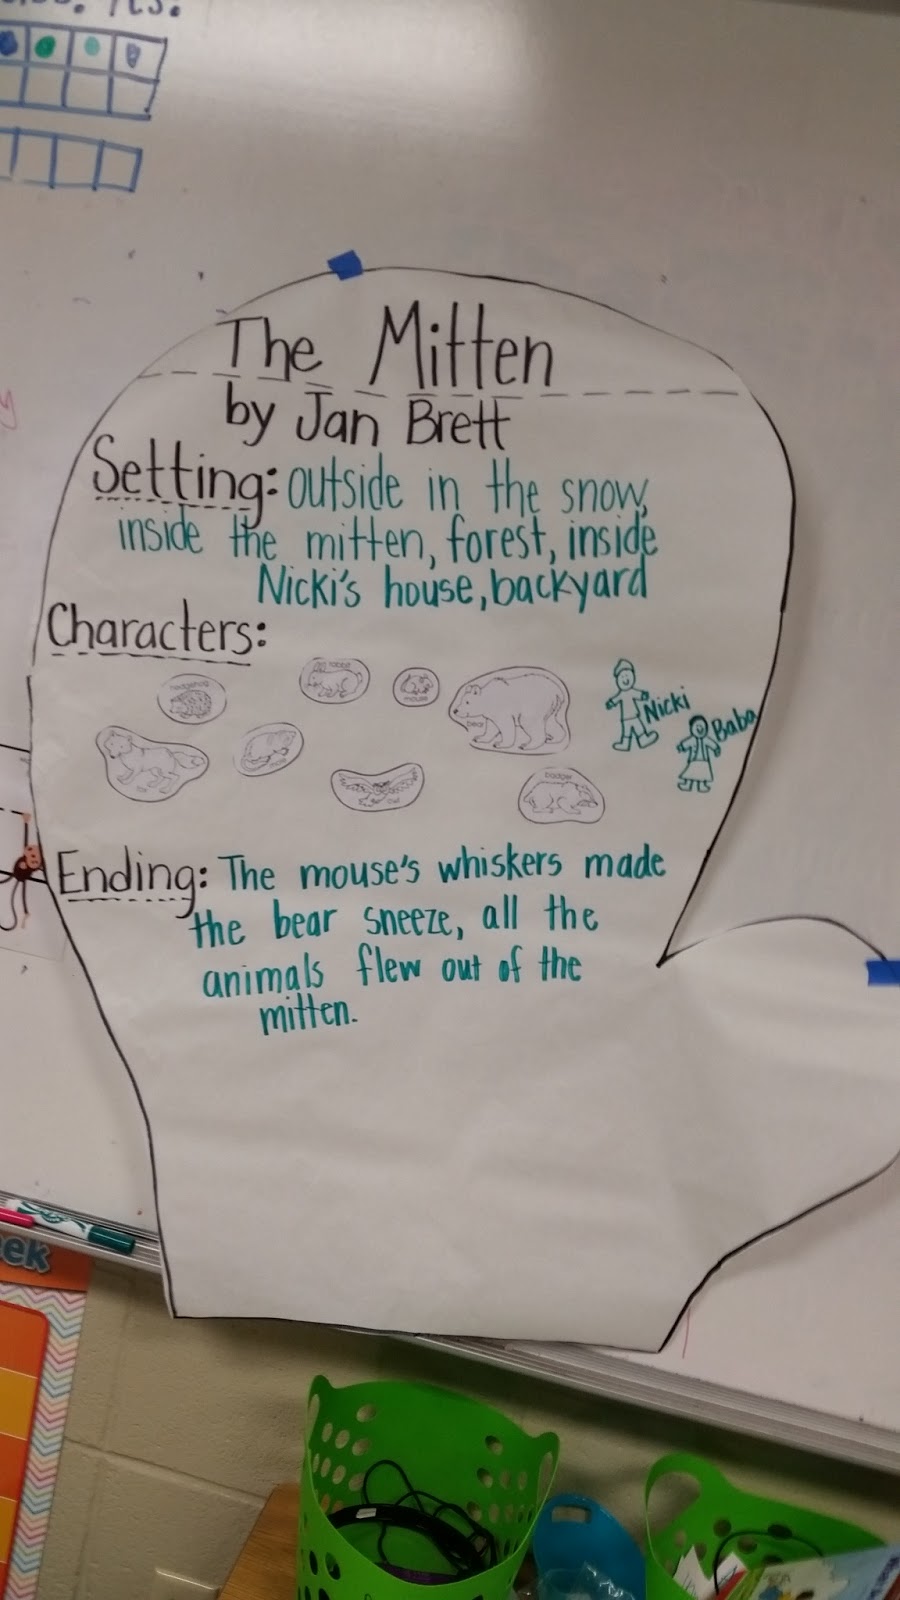 The Mitten
by Jan Brett
Setting: outside in the snow,
inside the mitten, forest, inside
Nicki's house, backyard
Characters:
hedgehog
rabbit
mouse
bear
Nicki
Baba
fox
mole
owl
badger
Ending: The mouse's whiskers made
the bear sneeze, all the
animals flew out of the
mitten.
eek